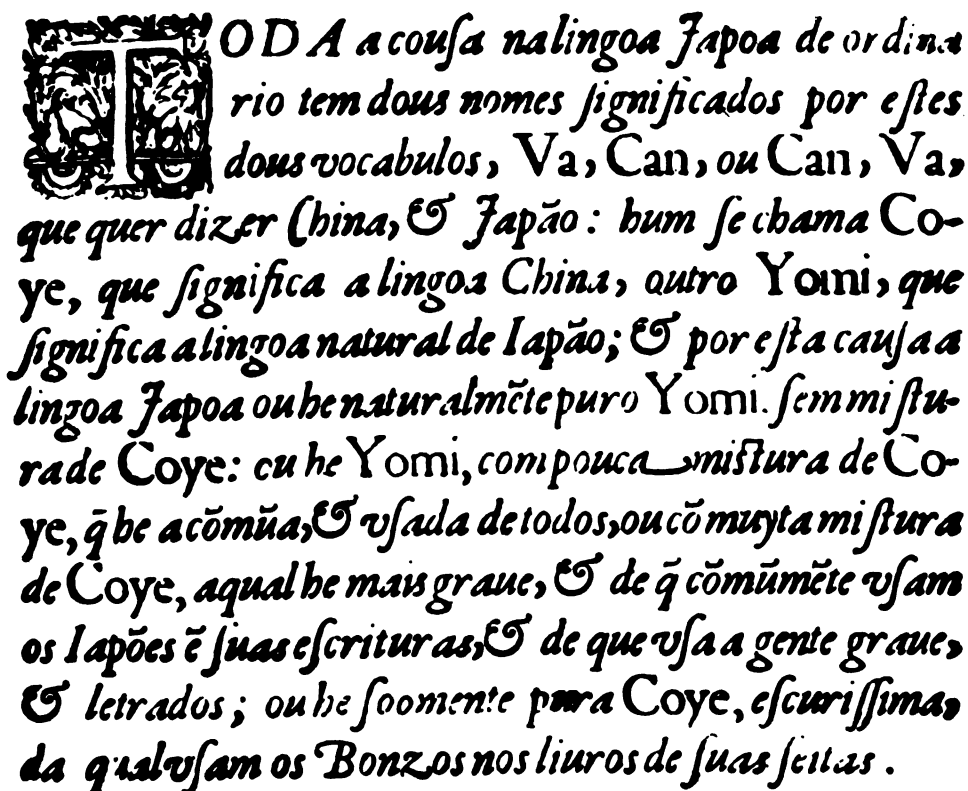 TODA a couſa na lingoa Japoa de ordina
rio tem dous nomes ſignificados por eſtes
dous vocabulos, Va, Can, ou Can, Va,
que quer dizer China, & Japão: hum ſe chama Co-
ye, que ſignifica a lingoa China, outro Yomi, que
ſignifica a lingoa natural de Iapão; & por eſta cauſa a
lingoa Japoa ou he naturalmẽte puro Yomi. ſem miſtu-
ra de Coye: cu he Yomi, com pouca miſtura de Co-
ye, q̃ he a cõmũa, & vſada de todos, ou cõ muyta miſtura
de Coye, a qual he mais graue, & de q̃ cõmũmẽte vſam
os Iapões ẽ ſuas eſcrituras, & de que vſa a gente graue,
& letrados; ou he ſoomente pura Coye, eſcuriſſima,
da qual vſam os Bonzos nos liuros de ſuas ſeitas.